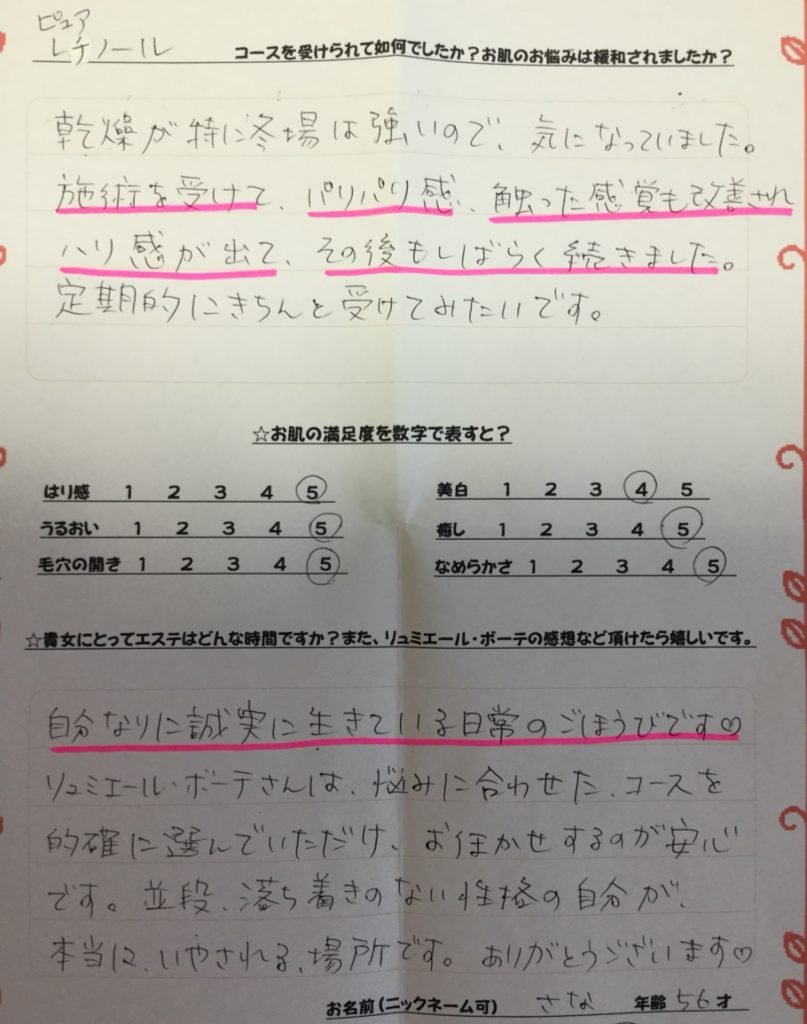 ピュア
レチノール
コースを受けられて如何でしたか？お肌のお悩みは緩和されましたか？
乾燥が特に冬場は強いので、気になっていました。
施術を受けて、パリパリ感、触った感覚も改善され
ハリ感が出て、その後もしばらく続きました。
定期的にきちんと受けてみたいです。
☆お肌の満足度を数字で表すと？
はり感 1 2 3 4 5
美白 1 2 3 4 5
うるおい 1 2 3 4 5
癒し 1 2 3 4 5
毛穴の開き 1 2 3 4 5
なめらかさ 1 2 3 4 5
☆貴女にとってエステはどんな時間ですか？また、リュミエール・ボーテの感想など頂けたら嬉しいです。
自分なりに誠実に生きている日常のごほうびです♡
リュミエール・ボーテさんは、悩みに合わせた、コースを
的確に選んでいただけ、お任かせするのが安心
です。並段、落ち着きのない性格の自分が、
本当に、いやされる、場所です。ありがとうございます♡
お名前（ニックネーム可） さな 年齢 56才